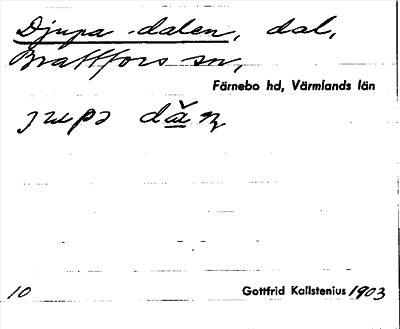 Djupa-dalen, dal,
Brattfors sn,
Färnebo hd, Värmlands län
10 Gottfrid Kallstenius 1903